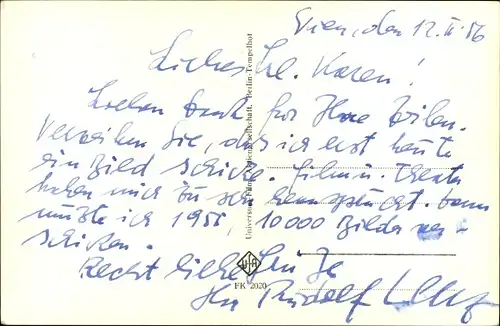 Wien, den 12. II. 56
Liebes Frl. Karen!
Lieben Dank für Ihre Zeilen.
Verzeihen Sie, daß ich erst heute
ein Bild schicke. Film u. Theater
haben mich zu sehr
mußte ich 1955, 10000 Bilder ver-
schicken.
Recht liebe
Ihr Rudolf
Universum-Film Aktiengesellschaft, Berlin-Tempelhof
UFA
FK 2020